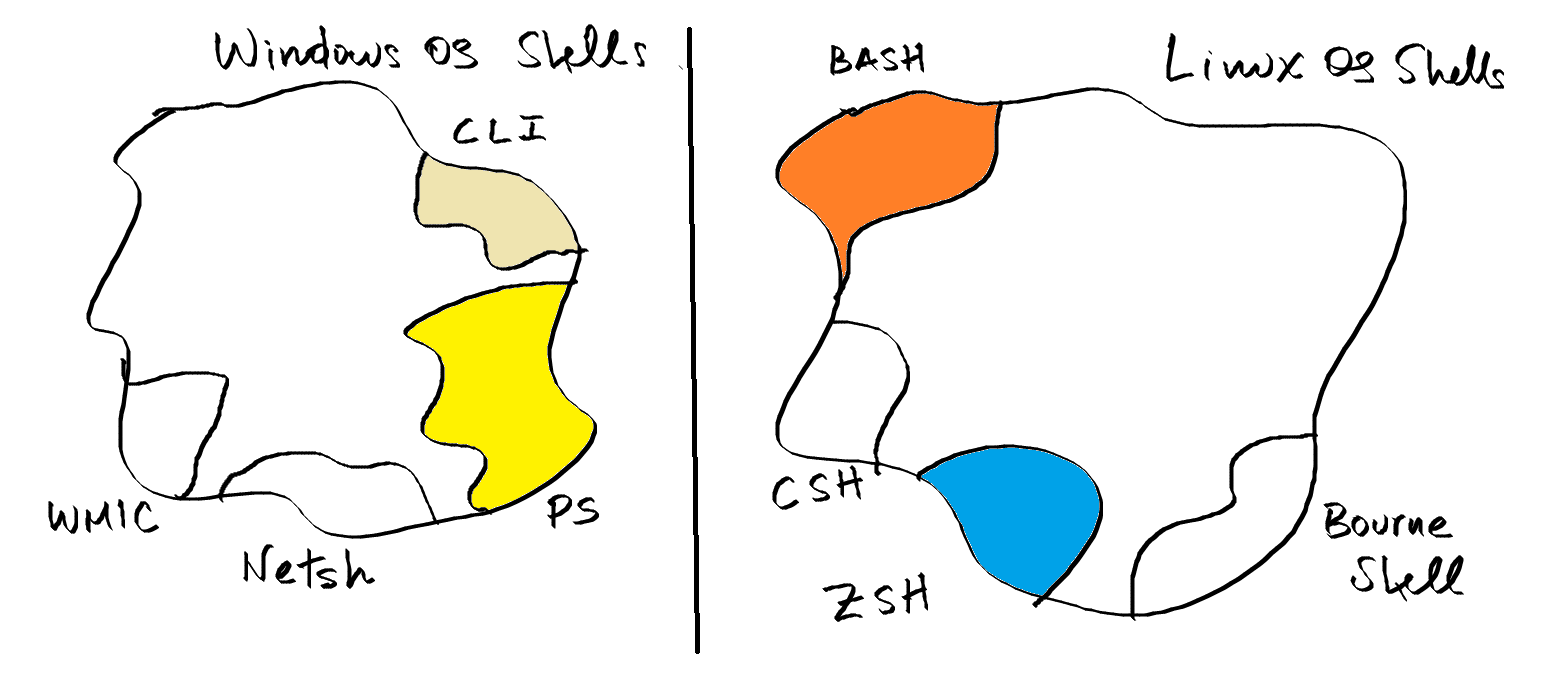 Windows OS Shells
CLI
WMIC
Netsh
PS
BASH
Linux OS Shells
CSH
ZSH
Bourne
Shell